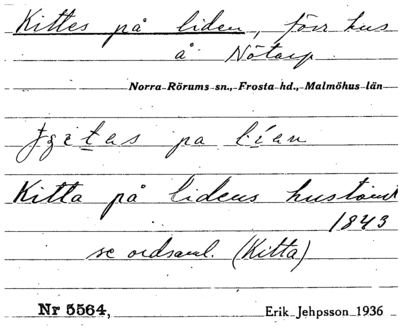 Kittes på liden, förr hus
å Nötarp
Norra Rörums sn., Frosta hd., Malmöhus län
pa lían
Kitta på lidens hustomt
1843
se ordsaml. (Kitta)
Nr 5564,
Erik Jehpsson 1936